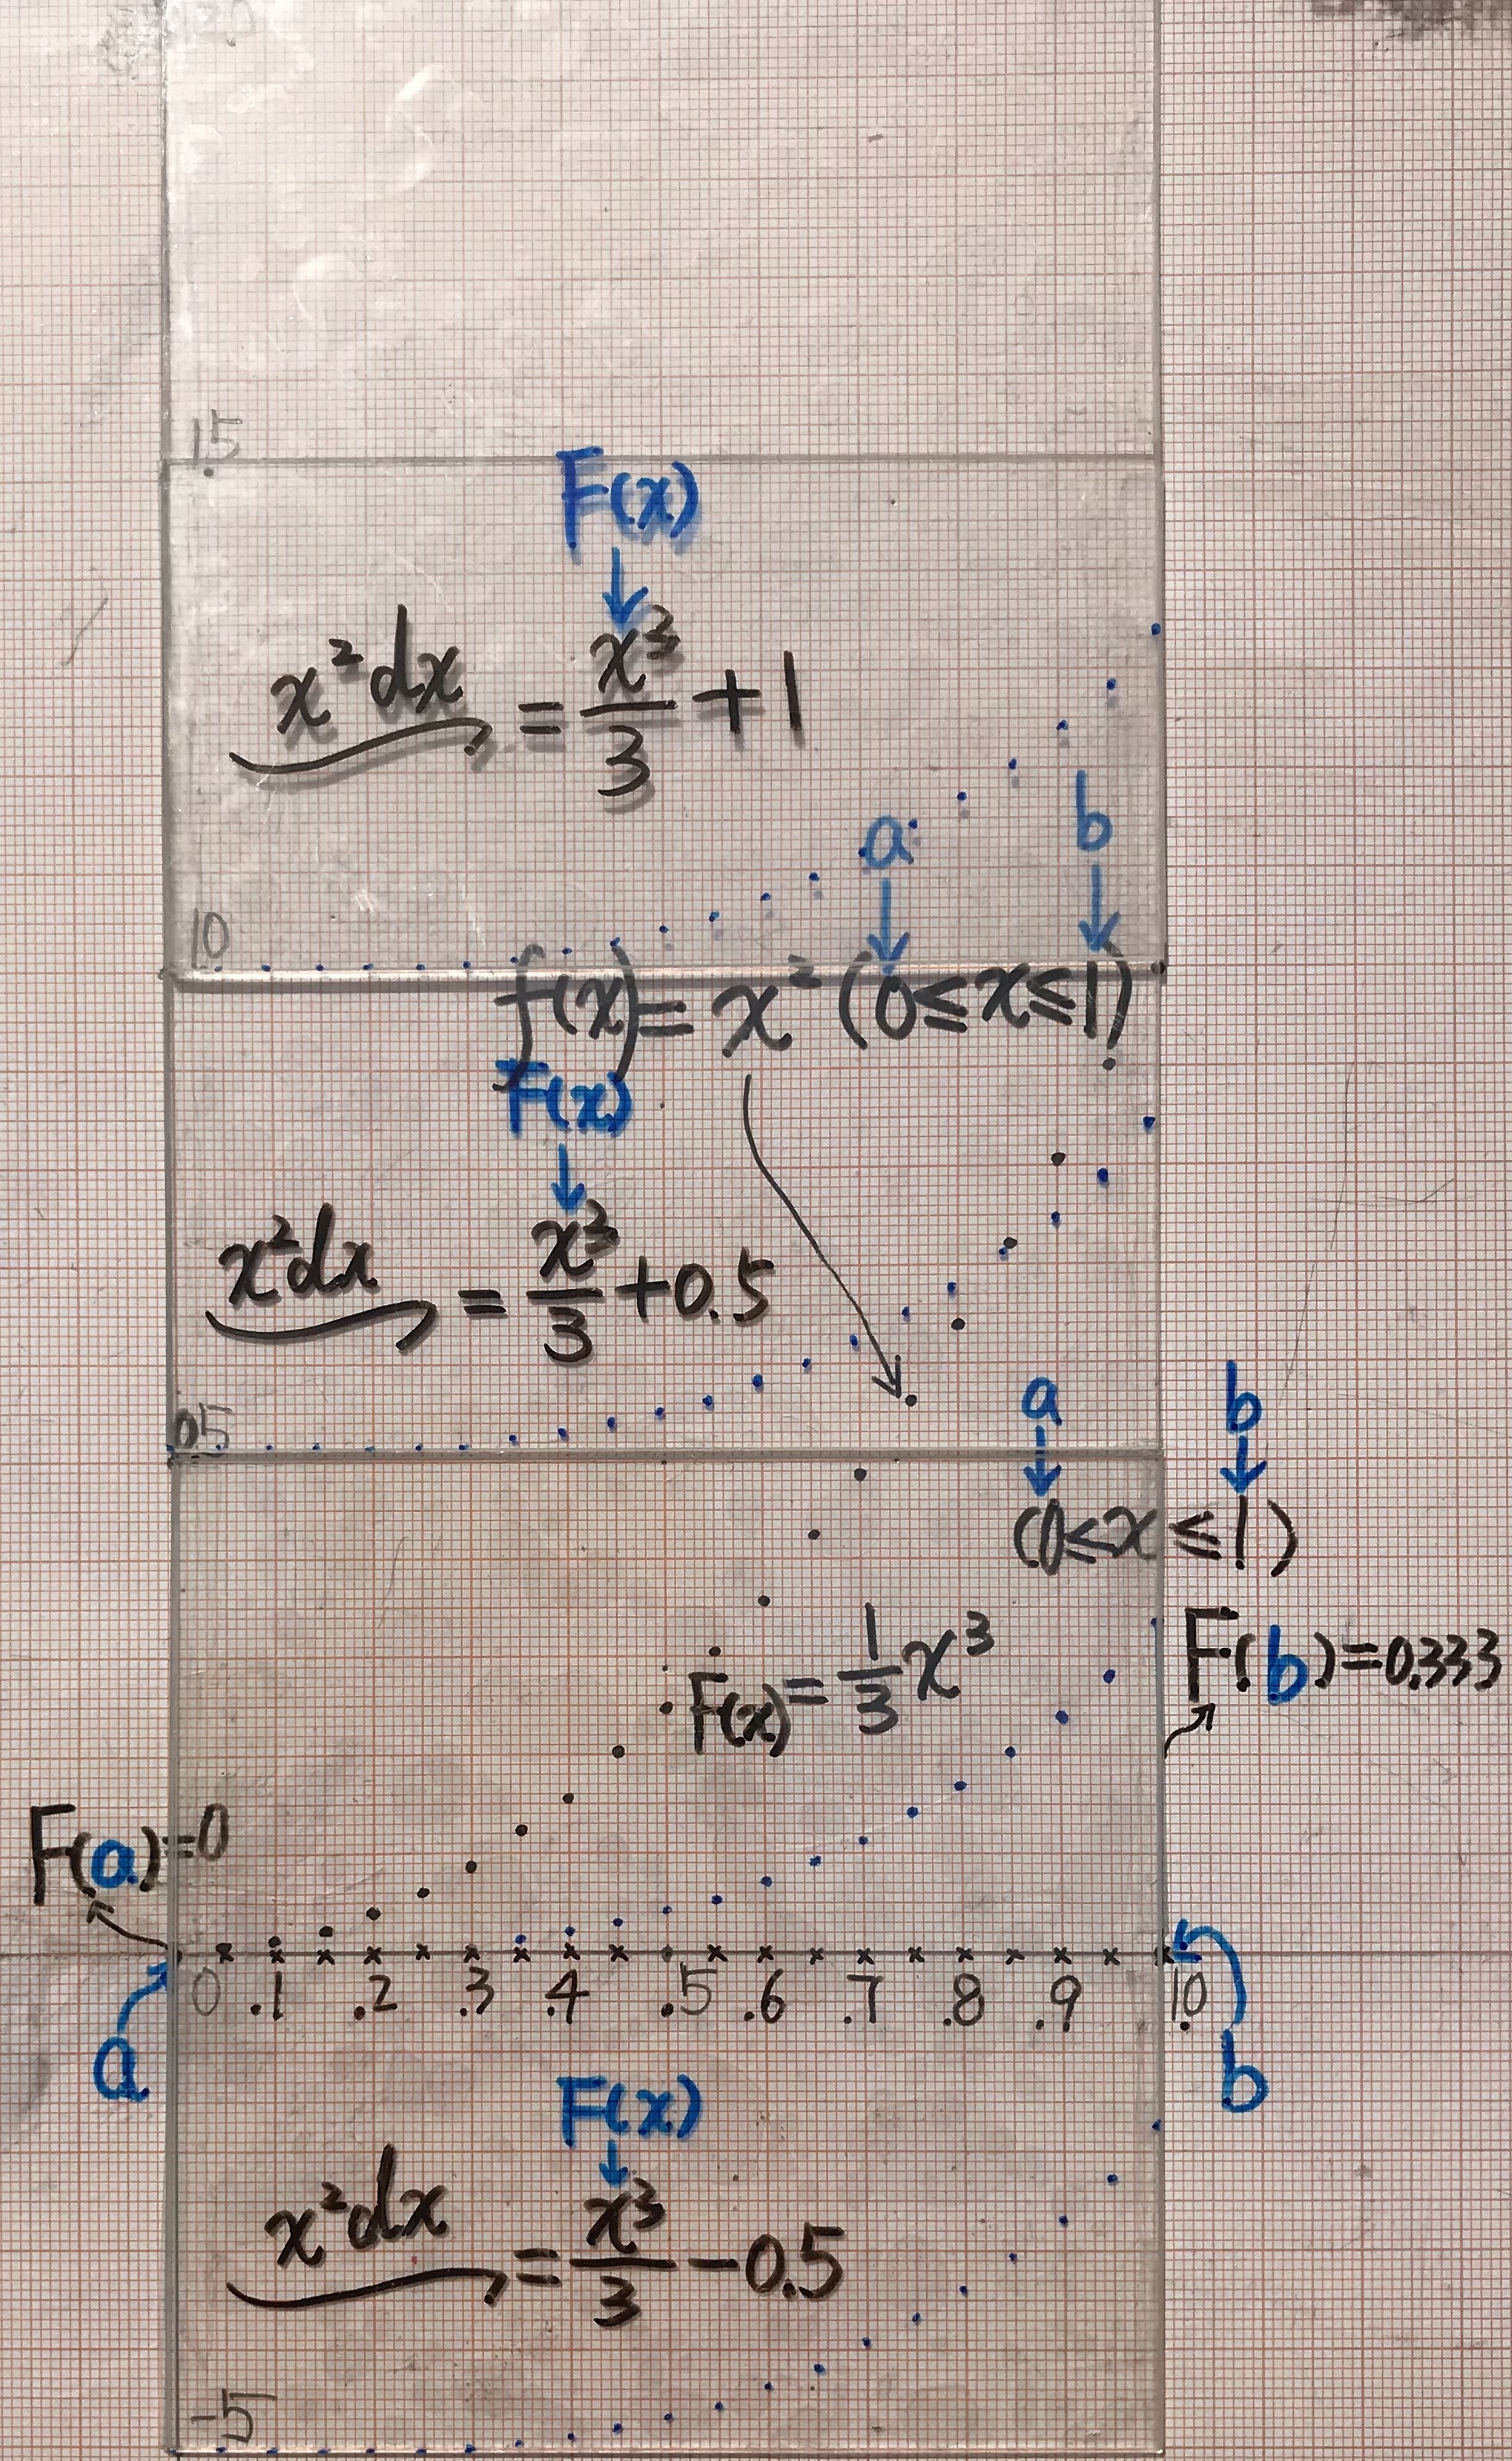 15
F(x)
x²dx = x³/3 + 1
a b
10
f(x) = x² (0≤x≤1)
F(x)
x²dx = x³/3 + 0.5
a b
05
(0≤x≤1)
F(x) = 1/3 x³
F(b) = 0.333
F(a) = 0
0 .1 .2 .3 .4 .5 .6 .7 .8 .9 10
a b
F(x)
x²dx = x³/3 − 0.5
-5